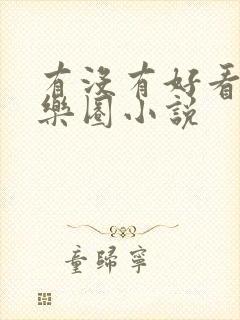 有沒有好看
樂園小說
童歸寧